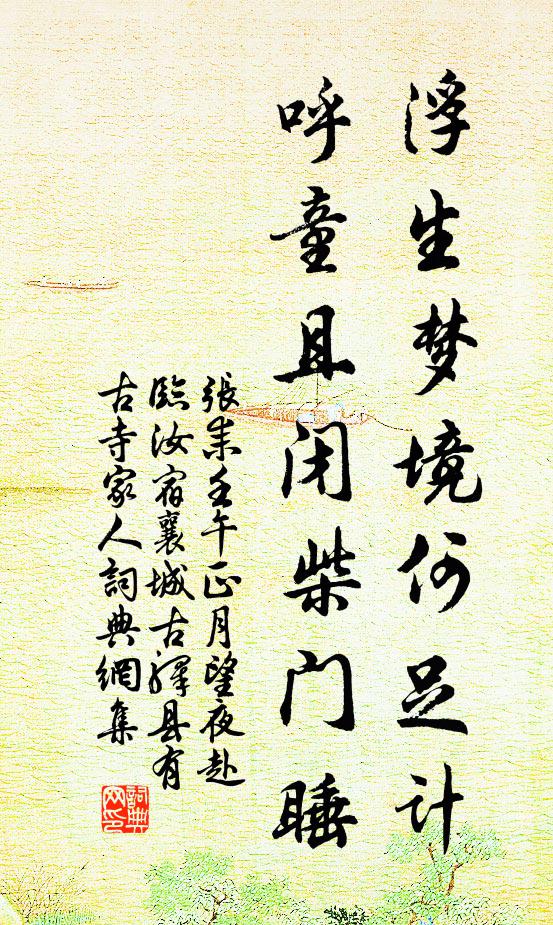 浮生梦境何足计
呼童且闭柴门睡
張耒壬午正月望夜赴
臨汝宿襄城古驛县有
古寺家人詞典網集
詞典网印